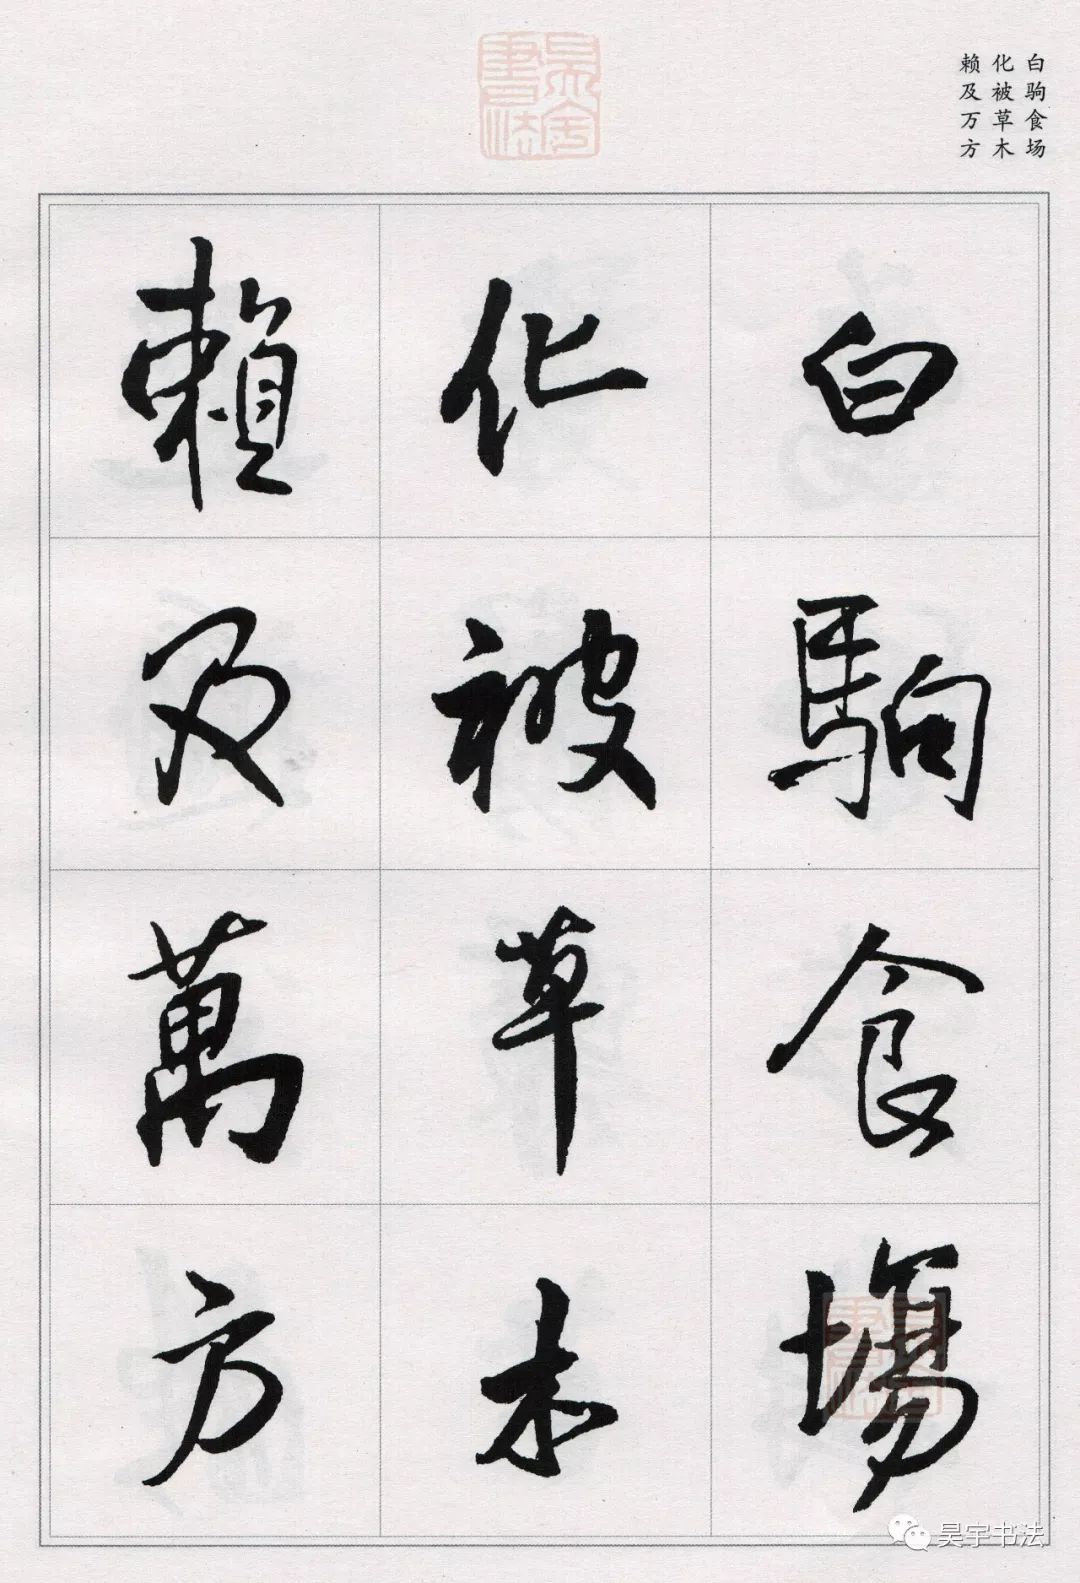 白驹食场
化被草木
赖及万方
白駒食場
化被草木
賴及萬方
昊宇書法
昊宇书法